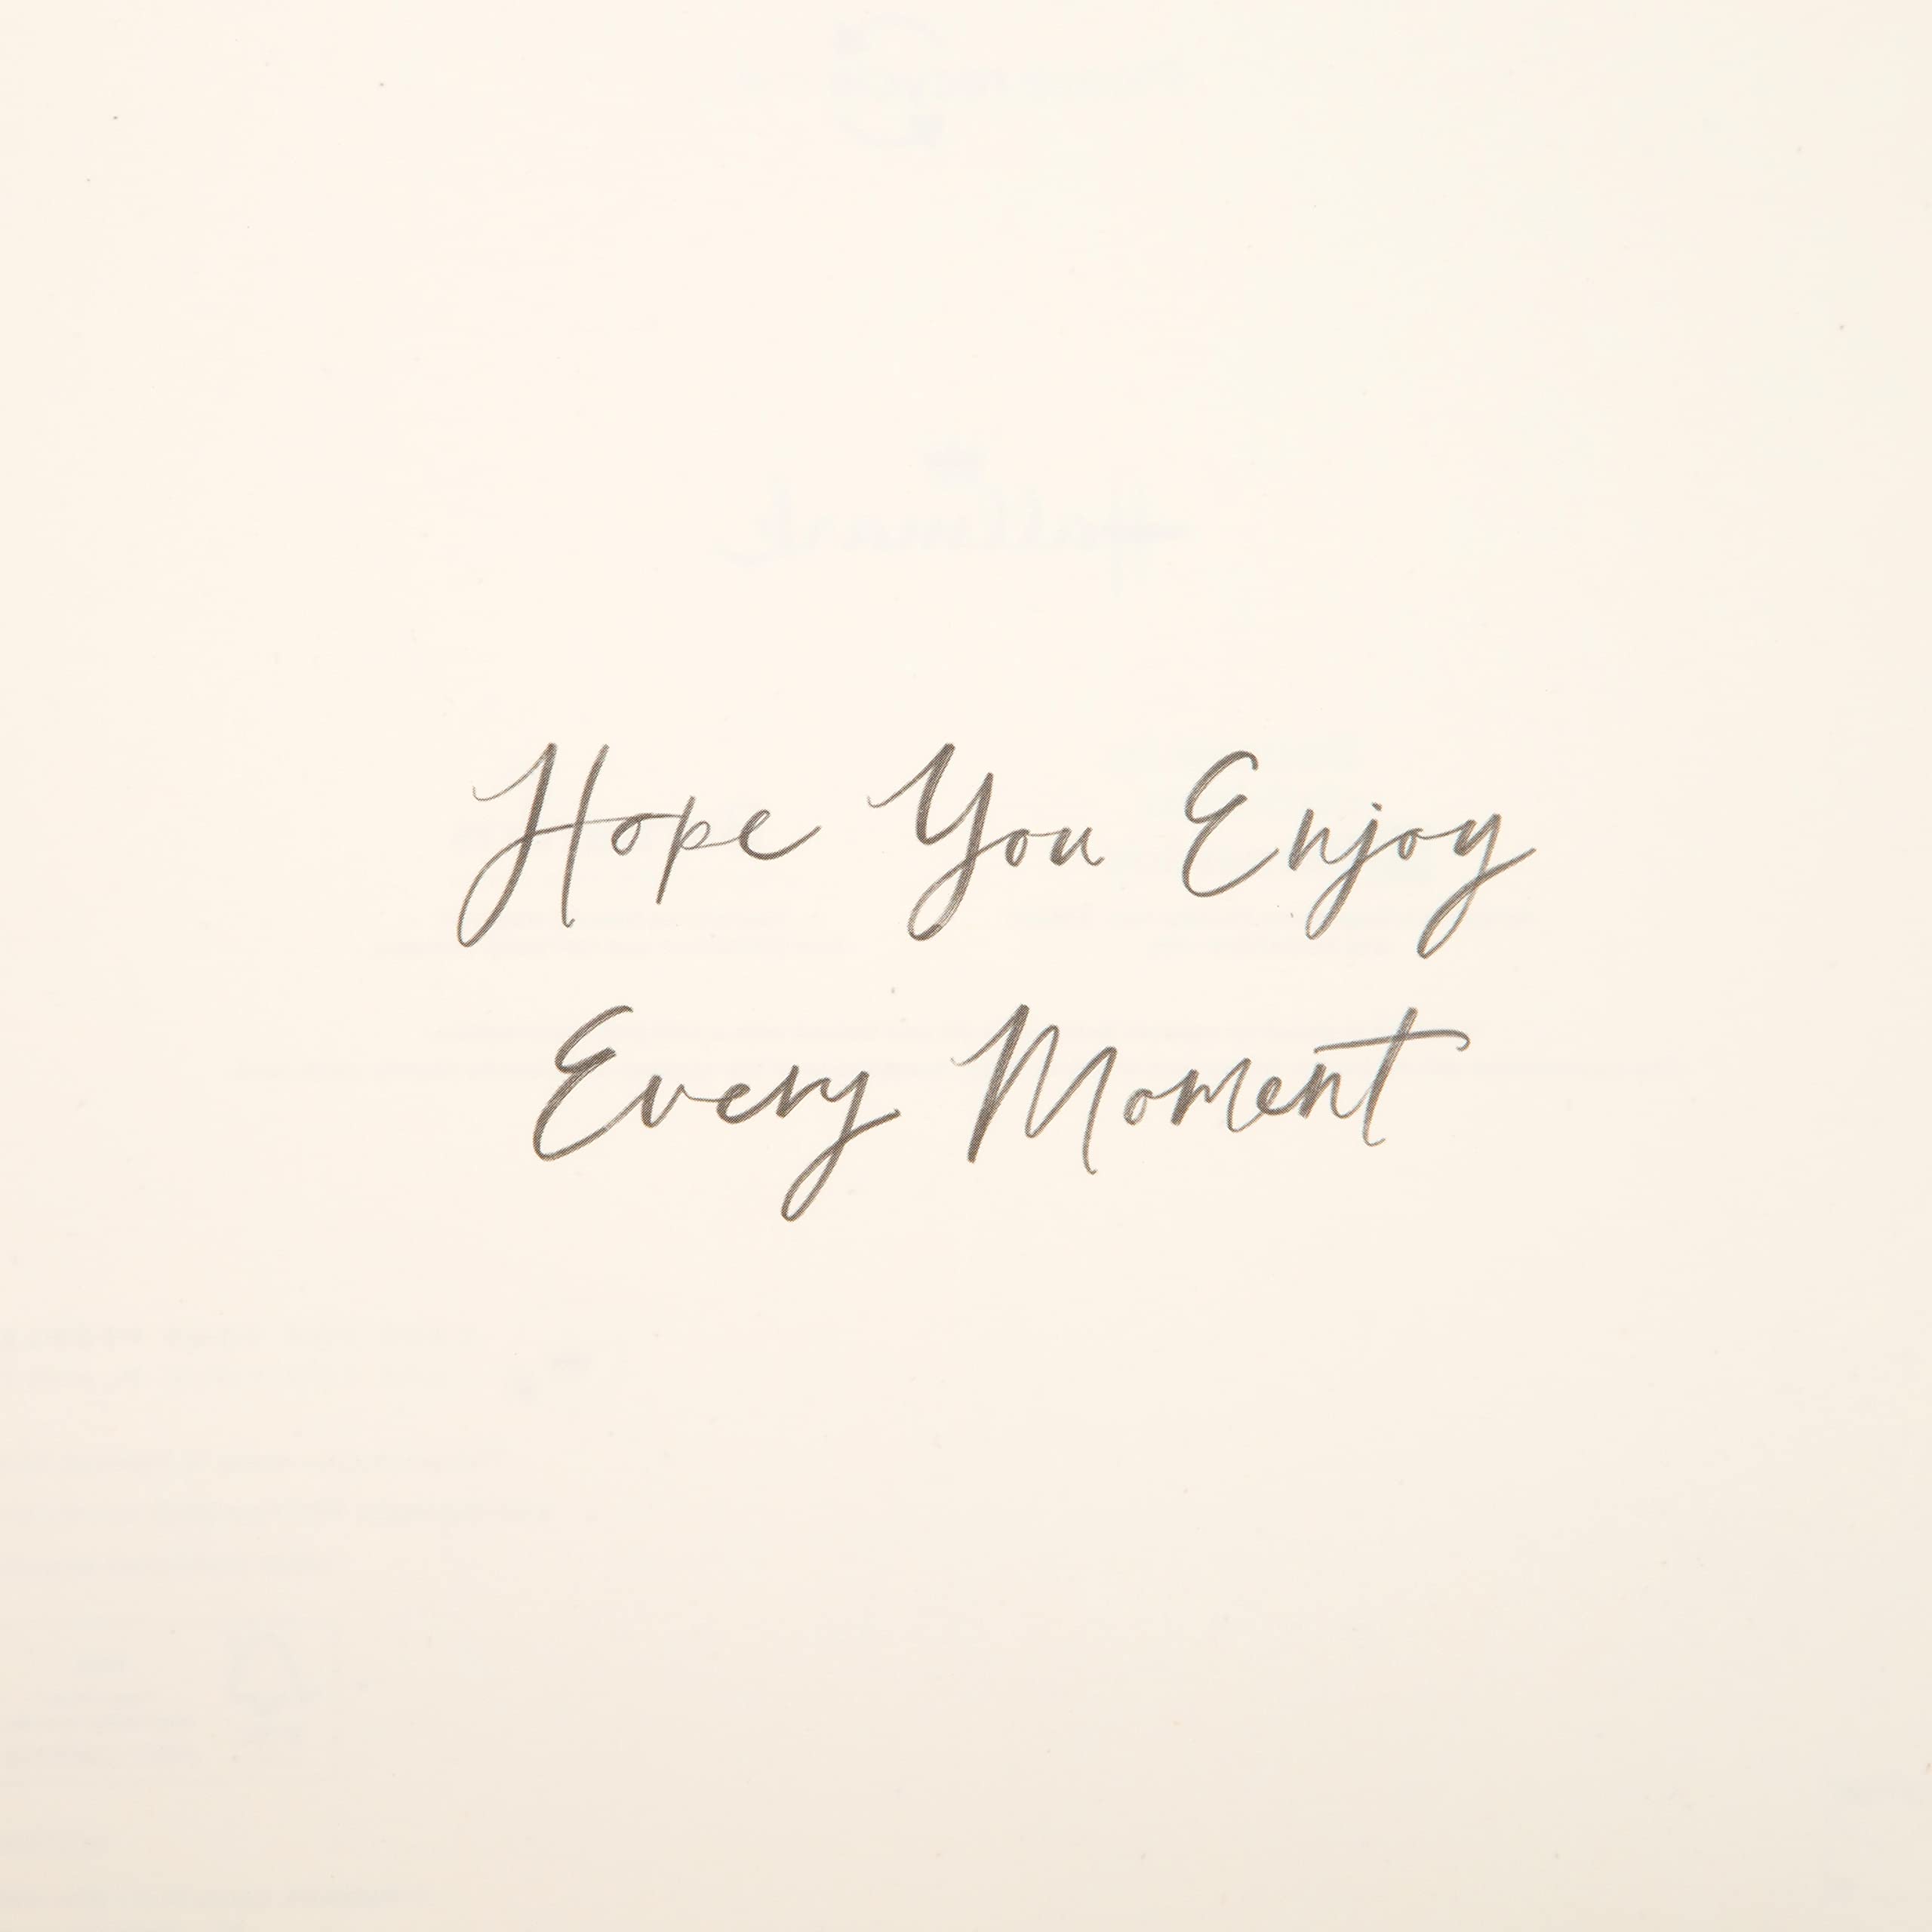 Hope You Enjoy
Every Moment
Hallmark